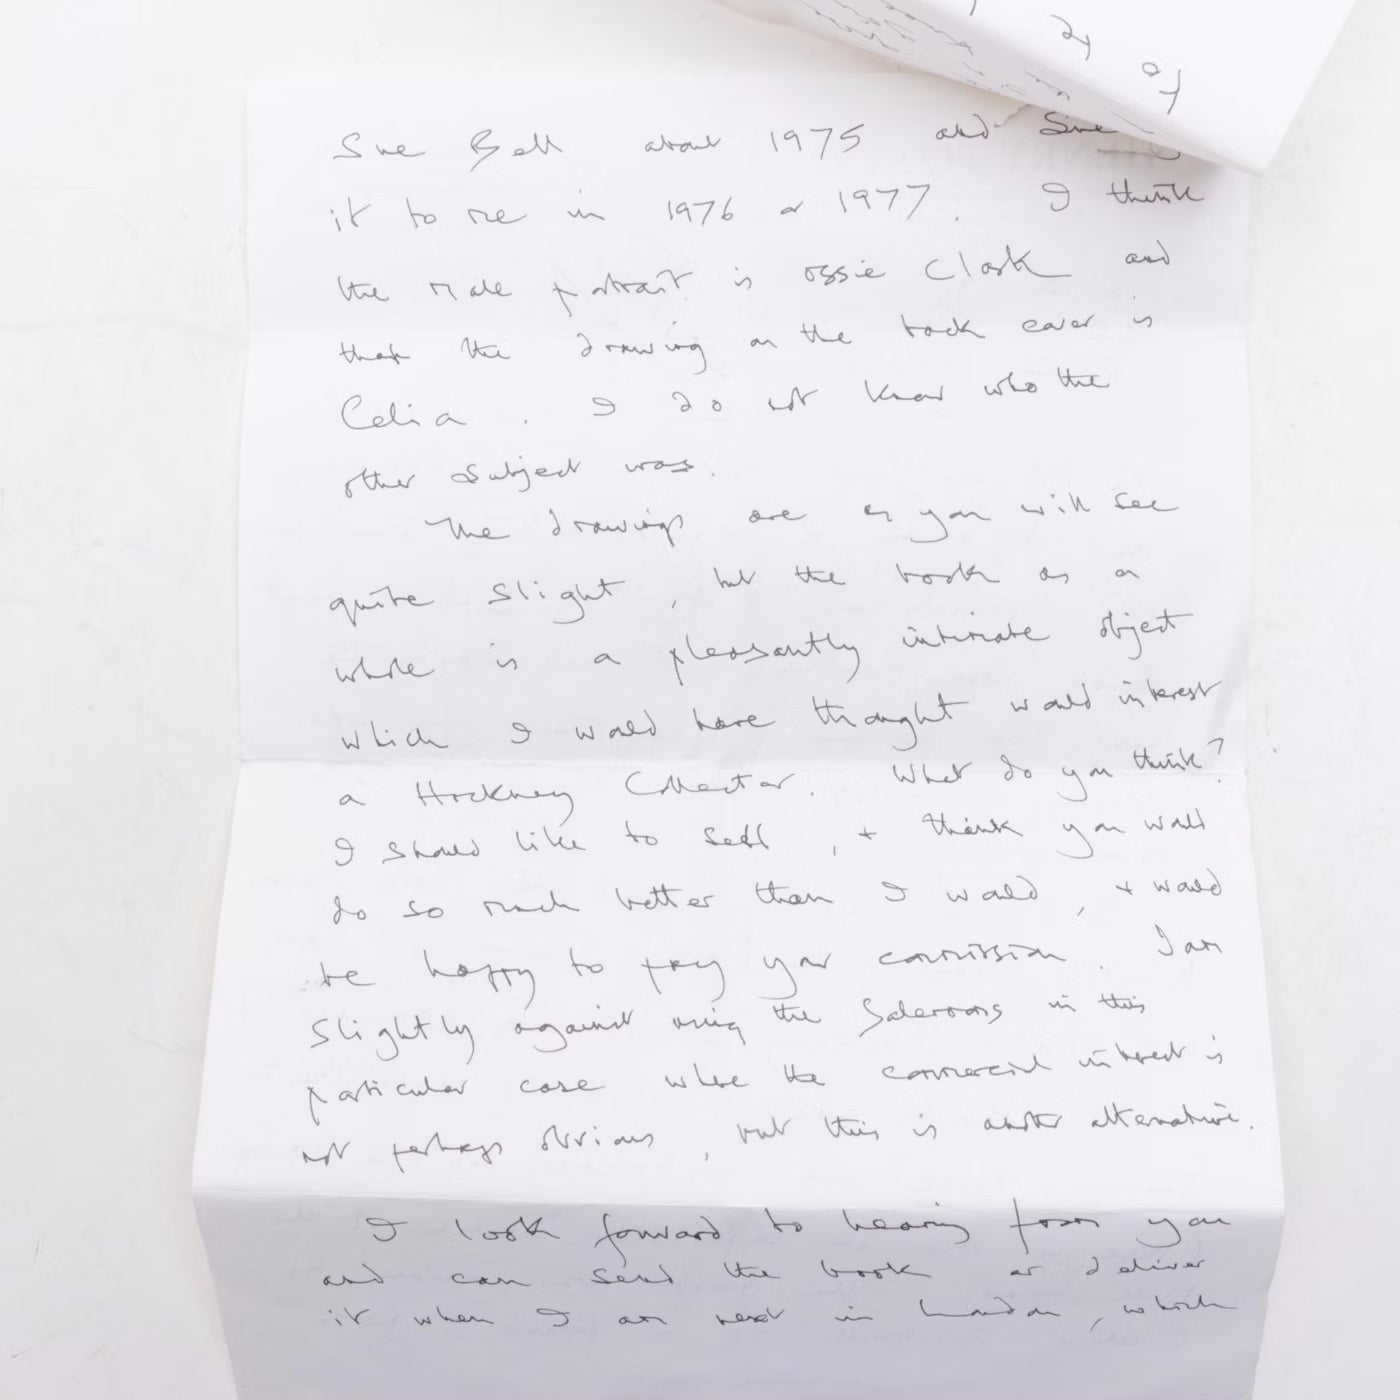 Sue Bell about 1975 and Sue
it to me in 1976 or 1977. I think
the male portrait is Ossie Clark and
that the drawing on the back cover is
Celia. I do not know who the
other subject was.
The drawings are as you will see
quite slight, but the book as a
whole is a pleasantly intimate object
which I would have thought would interest
a Hockney Collector. What do you think?
I should like to sell, + think you would
do so much better than I would, + would
be happy to pay your commission. I am
slightly against using the Salerooms in this
particular case where the commercial interest is
not perhaps obvious, but this is another alternative.
I look forward to hearing from you
and can send the book or deliver
it when I am next in London, which